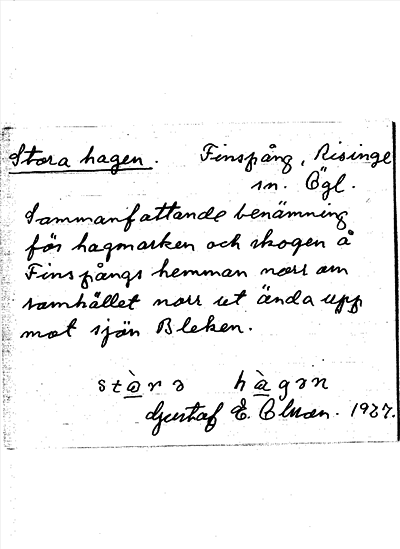 Stora hagen. Finspång, Risinge
sn. Ögl.
Sammanfattande benämning
för hagmarken och skogen å
Finspångs hemman norr om
samhället norr ut ända upp
mot sjön Bleken.
stòrə hàgən
Gustaf E. Olsson. 1937.